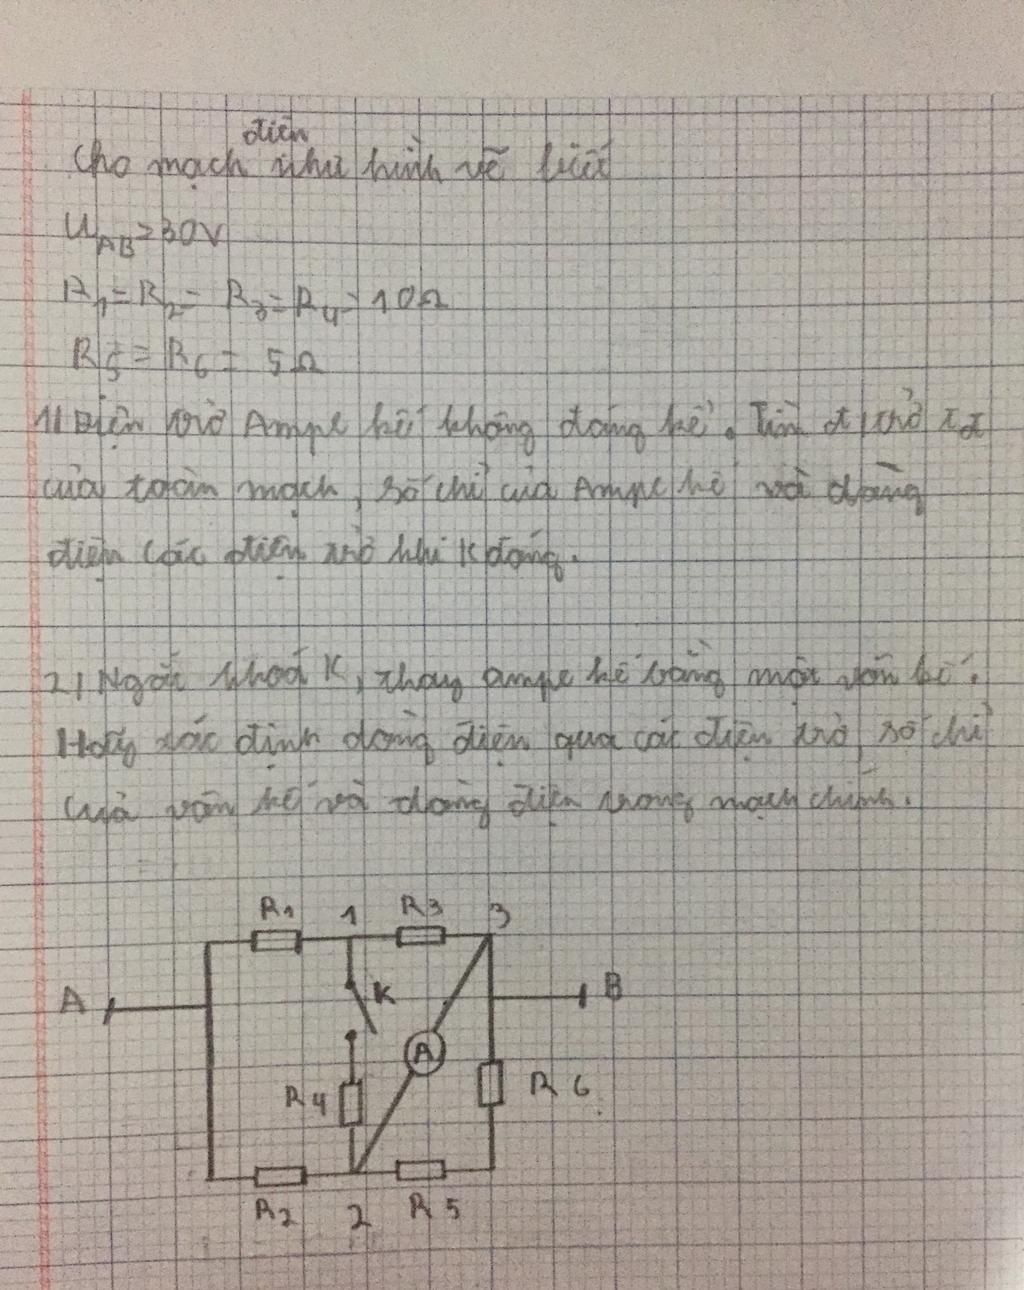 điện
Cho mạch như hình vẽ biết
U_AB = 30V
R1 = R2 = R3 = R4 = 10Ω
R5 = R6 = 5Ω
1/ Điện trở Ampe kế không đáng kể. Tìm đ trở
của toàn mạch, số chỉ của Ampe kế và dòng
điện các điện trở khi K đóng.
2/ Ngắt khoá K, thay ampe kế bằng một vôn kế.
Hãy xác định dòng điện qua các điện trở, số chỉ
của vôn kế và dòng điện trong mạch chính.
R1 1 R3 3
A K B
A
R4 R6
R2 2 R5